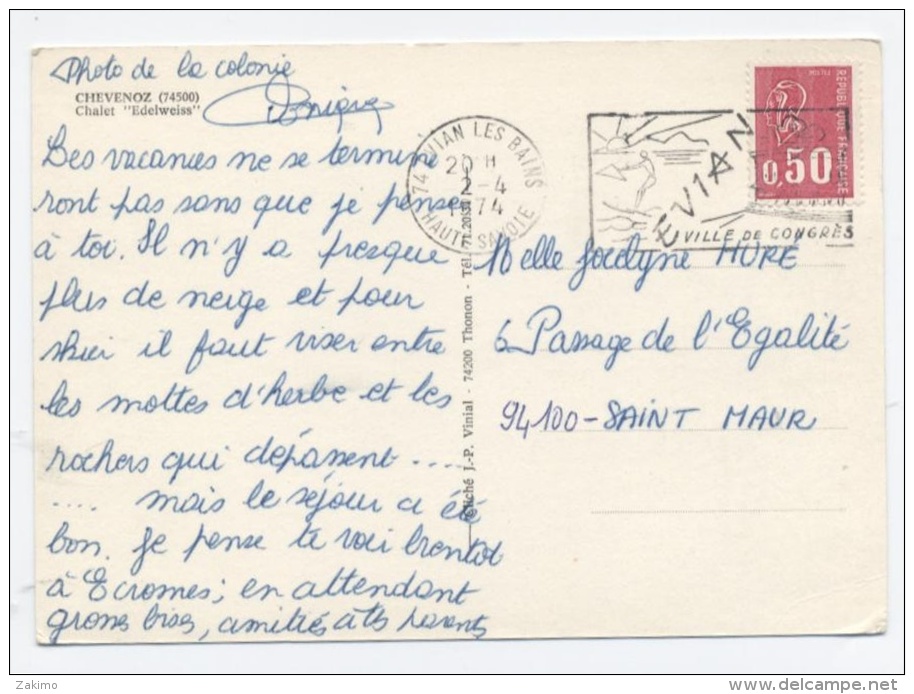 Photo de la colonie
CHEVENOZ (74500)
Chalet "Edelweiss"
Les vacances ne se termine
ront pas sans que je pense
à toi. Il n'y a presque
plus de neige et pour
skier il faut viser entre
les mottes d'herbe et les
rochers qui dépassent ....
.... mais le séjour a été
bon. Je pense te voir bientot
à Ecromes; en attendant
grosses bises, amitiés à tes parents
Cliché J.-P. Vinial - 74200 Thonon - Tél. 71.20.30
74 EVIAN LES BAINS
20 H
2-4
1974
HAUTE SAVOIE
EVIAN
VILLE DE CONGRÈS
REPUBLIQUE FRANÇAISE
0,50
Melle Jocelyne HURE
6 Passage de l'Egalité
94100-SAINT MAUR
Zakimo